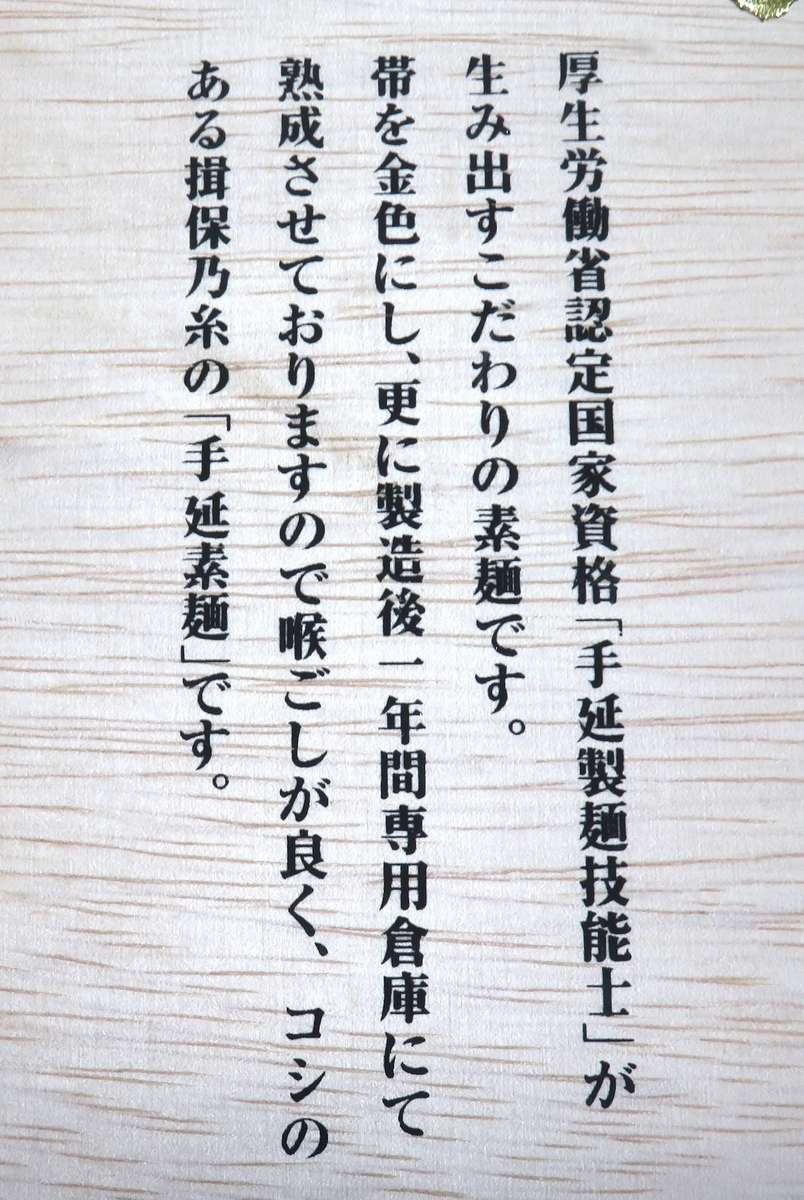 厚生労働省認定国家資格「手延製麺技能士」が
生み出すこだわりの素麺です。
帯を金色にし、更に製造後一年間専用倉庫にて
熟成させておりますので喉ごしが良く、コシの
ある揖保乃糸の「手延素麺」です。